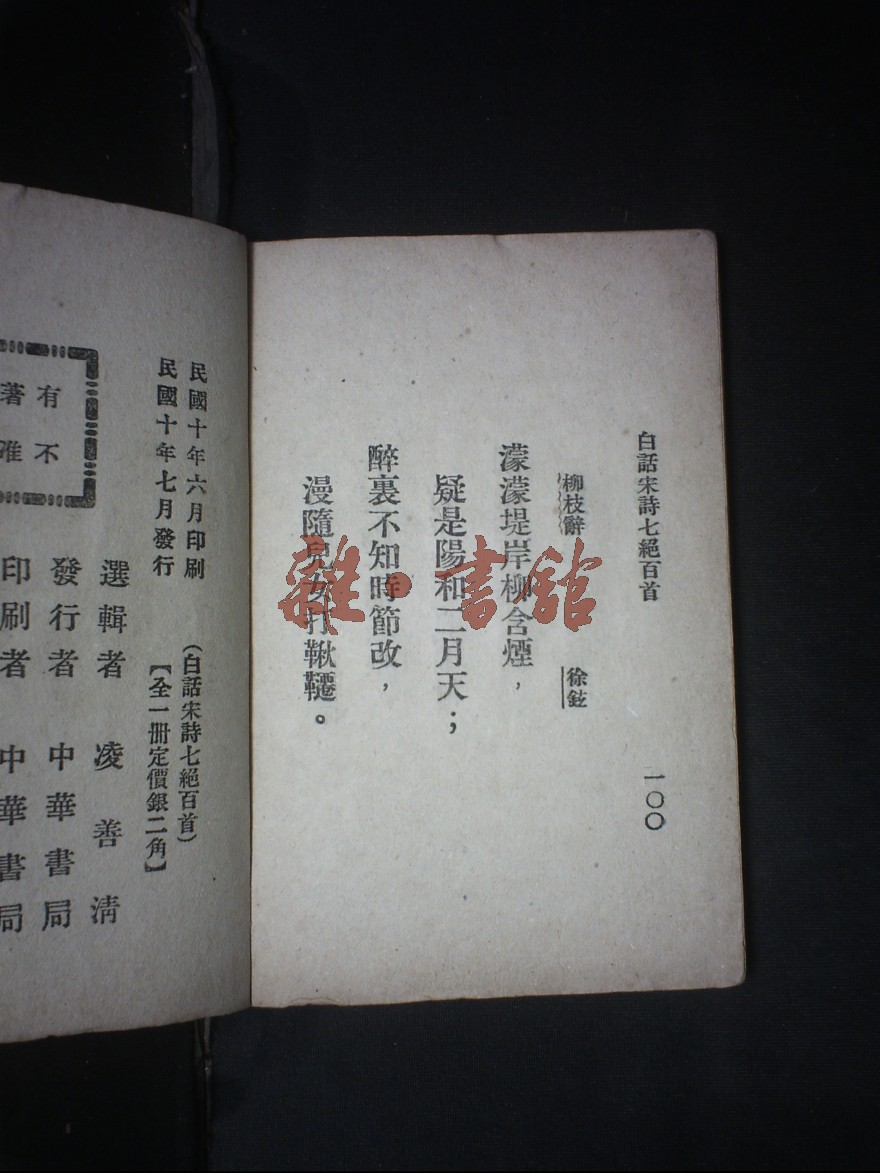 白話宋詩七絕百首
一〇〇
柳枝辭
徐鉉
濛濛堤岸柳含煙，
疑是陽和二月天；
醉裏不知時節改，
漫隨兒女打鞦韆。
雜·書館
民國十年六月印刷
民國十年七月發行
（白話宋詩七絕百首）
【全一冊定價銀二角】
選輯者 凌善清
發行者 中華書局
印刷者 中華書局
有不
著准